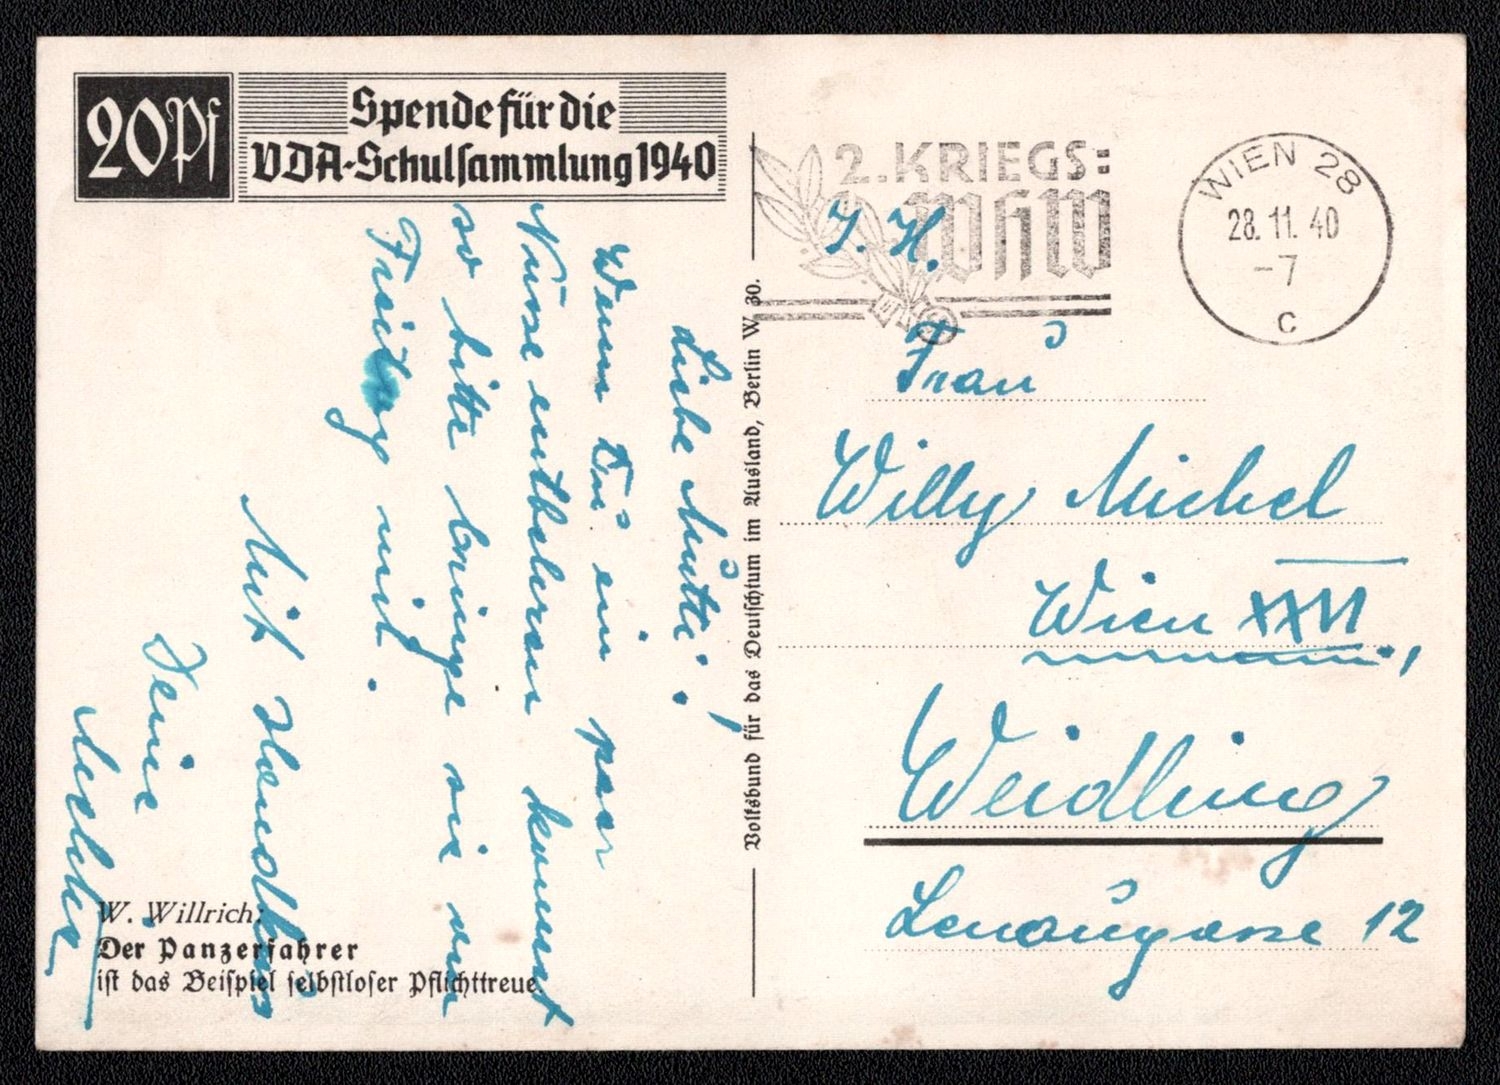 20Pf
Spende für die
VDA-Schulsammlung 1940
Liebe Mutti!
Wenn Du ein paar
Nüsse entbehren kannst
so bitte bringe sie am
Freitag mit.
Mit Handkuss
Deine
W. Willrich:
Der Panzerfahrer
ist das Beispiel selbstloser Pflichttreue.
Volksbund für das Deutschtum im Ausland, Berlin W 30.
2. KRIEGS-
WHW
WIEN 28
28.11.40
-7
c
I. H.
Frau
Willy Michel
Wien XXVI,
Weidling
Lenaugasse 12